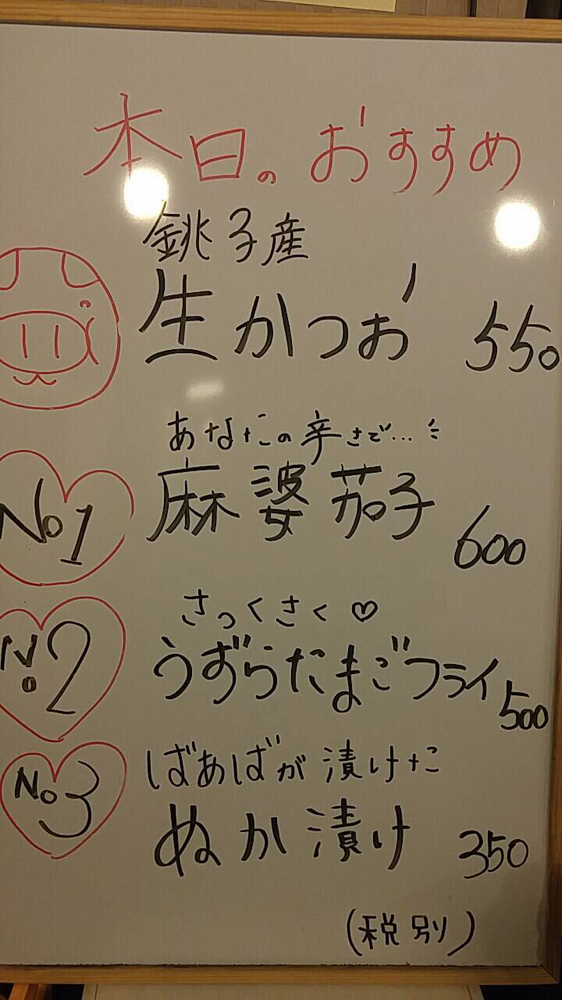 本日のおすすめ
銚子産
生かつお 550
あなたの辛さで…
No1 麻婆茄子 600
さっくさく♡
No2 うずらたまごフライ 500
ばあばが漬けた
No3 ぬか漬け 350
(税別)